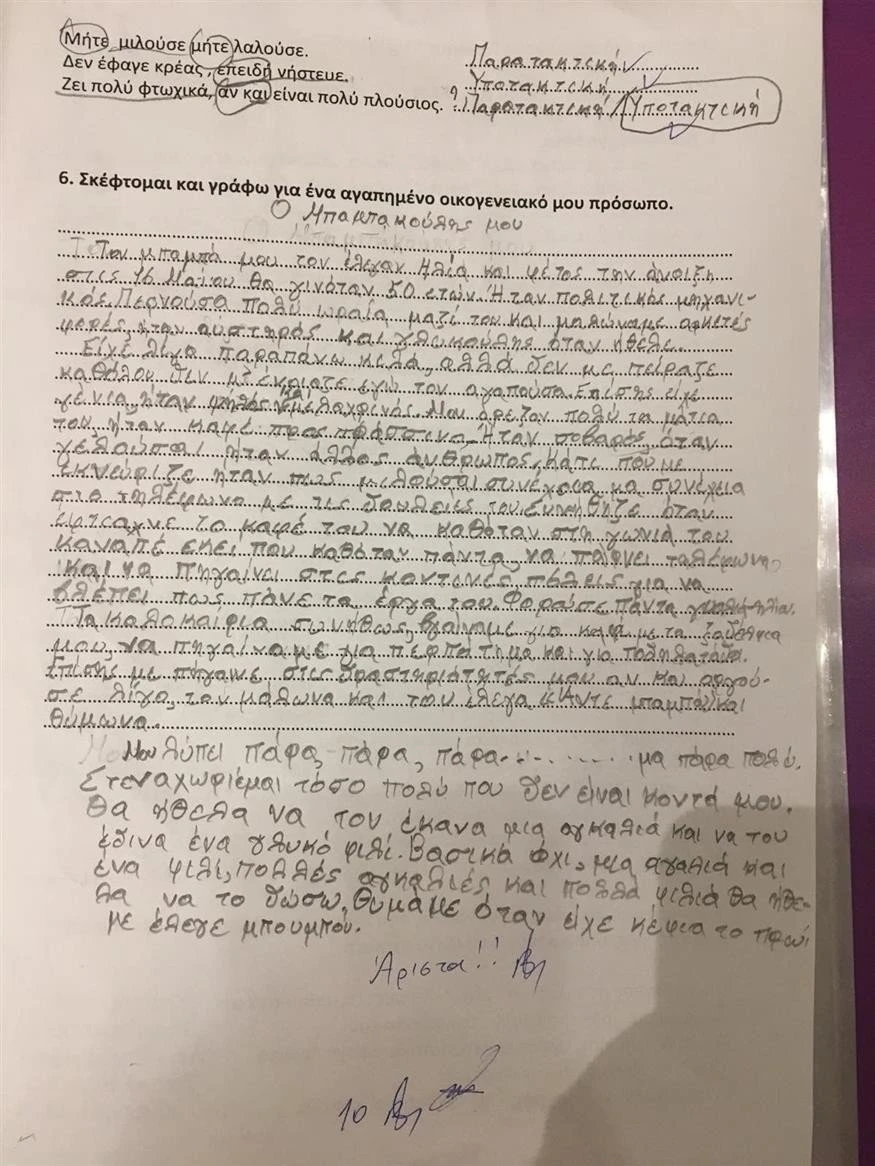 Μήτε μιλούσε μήτε λαλούσε. Παρατακτική
Δεν έφαγε κρέας, επειδή νήστευε. Υποτακτική
Ζει πολύ φτωχικά, αν και είναι πολύ πλούσιος. Παρατακτική / Υποτακτική
6. Σκέφτομαι και γράφω για ένα αγαπημένο οικογενειακό μου πρόσωπο.
Ο Μπαμπακούλης μου
Τον μπαμπά μου τον έλεγαν Ηλία και φέτος την άνοιξη
στις 16 Μαΐου θα γινόταν 50 ετών. Ήταν πολιτικός μηχανι-
κός. Περνούσα πολύ ωραία μαζί του και μαλώναμε αρκετές
φορές, ήταν αυστηρός και γλυκούλης όταν ήθελε.
Είχε λίγα παραπάνω κιλά, αλλά δεν με πείραζε
καθόλου δεν μ' έκοιαζε εγώ τον αγαπούσα. Επίσης είχε
γένια, ήταν ψηλός και μελαχρινός. Μου άρεζαν πολύ τα μάτια
του ήταν καφέ προς πράσινα. Ήταν σοβαρός, όταν
γελούσαι ήταν άλλος άνθρωπος. Κάτι που με
εκνεύριζε ήταν πως μιλούσαι συνέχεια μα συνέχεια
στο τηλέφωνο με τις δουλειές του συνήθιζε όταν
έφτιαχνε το καφέ του να καθόταν στη γωνιά του
καναπέ εκεί που καθόταν πάντα, να παίρνει τηλέφωνο
και να πηγαίνει στις κοντινές πόλεις για να
βλέπει πως πάνε τα έργα του. Φορούσε πάντα γυαλιά ηλίου.
Τα καλοκαίρια συνήθως, βγαίναμε για καφέ με τα ξαδέλφια
μου, να πηγαίναμε για περπάτημα και για ποδηλατάδα.
Επίσης με πήγαινε στις δραστηριότητές μου αν και αργού-
σε λίγο, τον μάλωνα και του έλεγα «Άντε μπαμπά» και
θύμωνα.
Μου λύπει πάρα, πάρα, πάρα......... μα πάρα πολύ.
Στεναχωριέμαι τόσο πολύ που δεν είναι κοντά μου.
Θα ήθελα να τον έκανα μια αγκαλιά και να του
έδινα ένα γλυκό φιλί. Βασικά όχι, μια αγαλιά και
ένα φιλί, πολλές αγκαλιές και πολλά φιλιά θα ήθε-
λα να το δώσω. Θυμάμε όταν είχε κέφια το πρωί
με έλεγε μπουμπού.
Άριστα!!
10